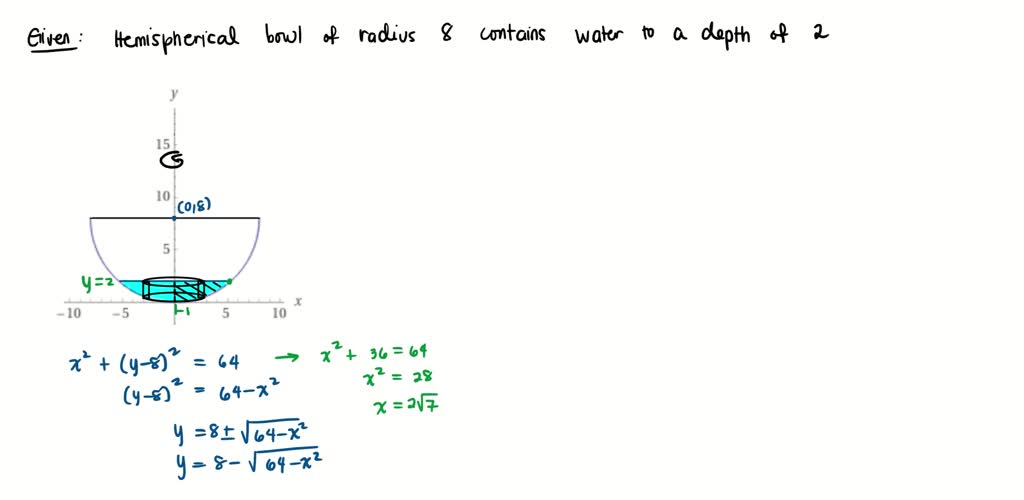 Given: Hemispherical bowl of radius 8 contains water to a depth of 2
y
15
10
(0,8)
5
y=2
x
-10 -5 5 10
x² + (y-8)² = 64 → x² + 36 = 64
(y-8)² = 64-x²
x² = 28
x = 2√7
y = 8± √64-x²
y = 8- √64-x²